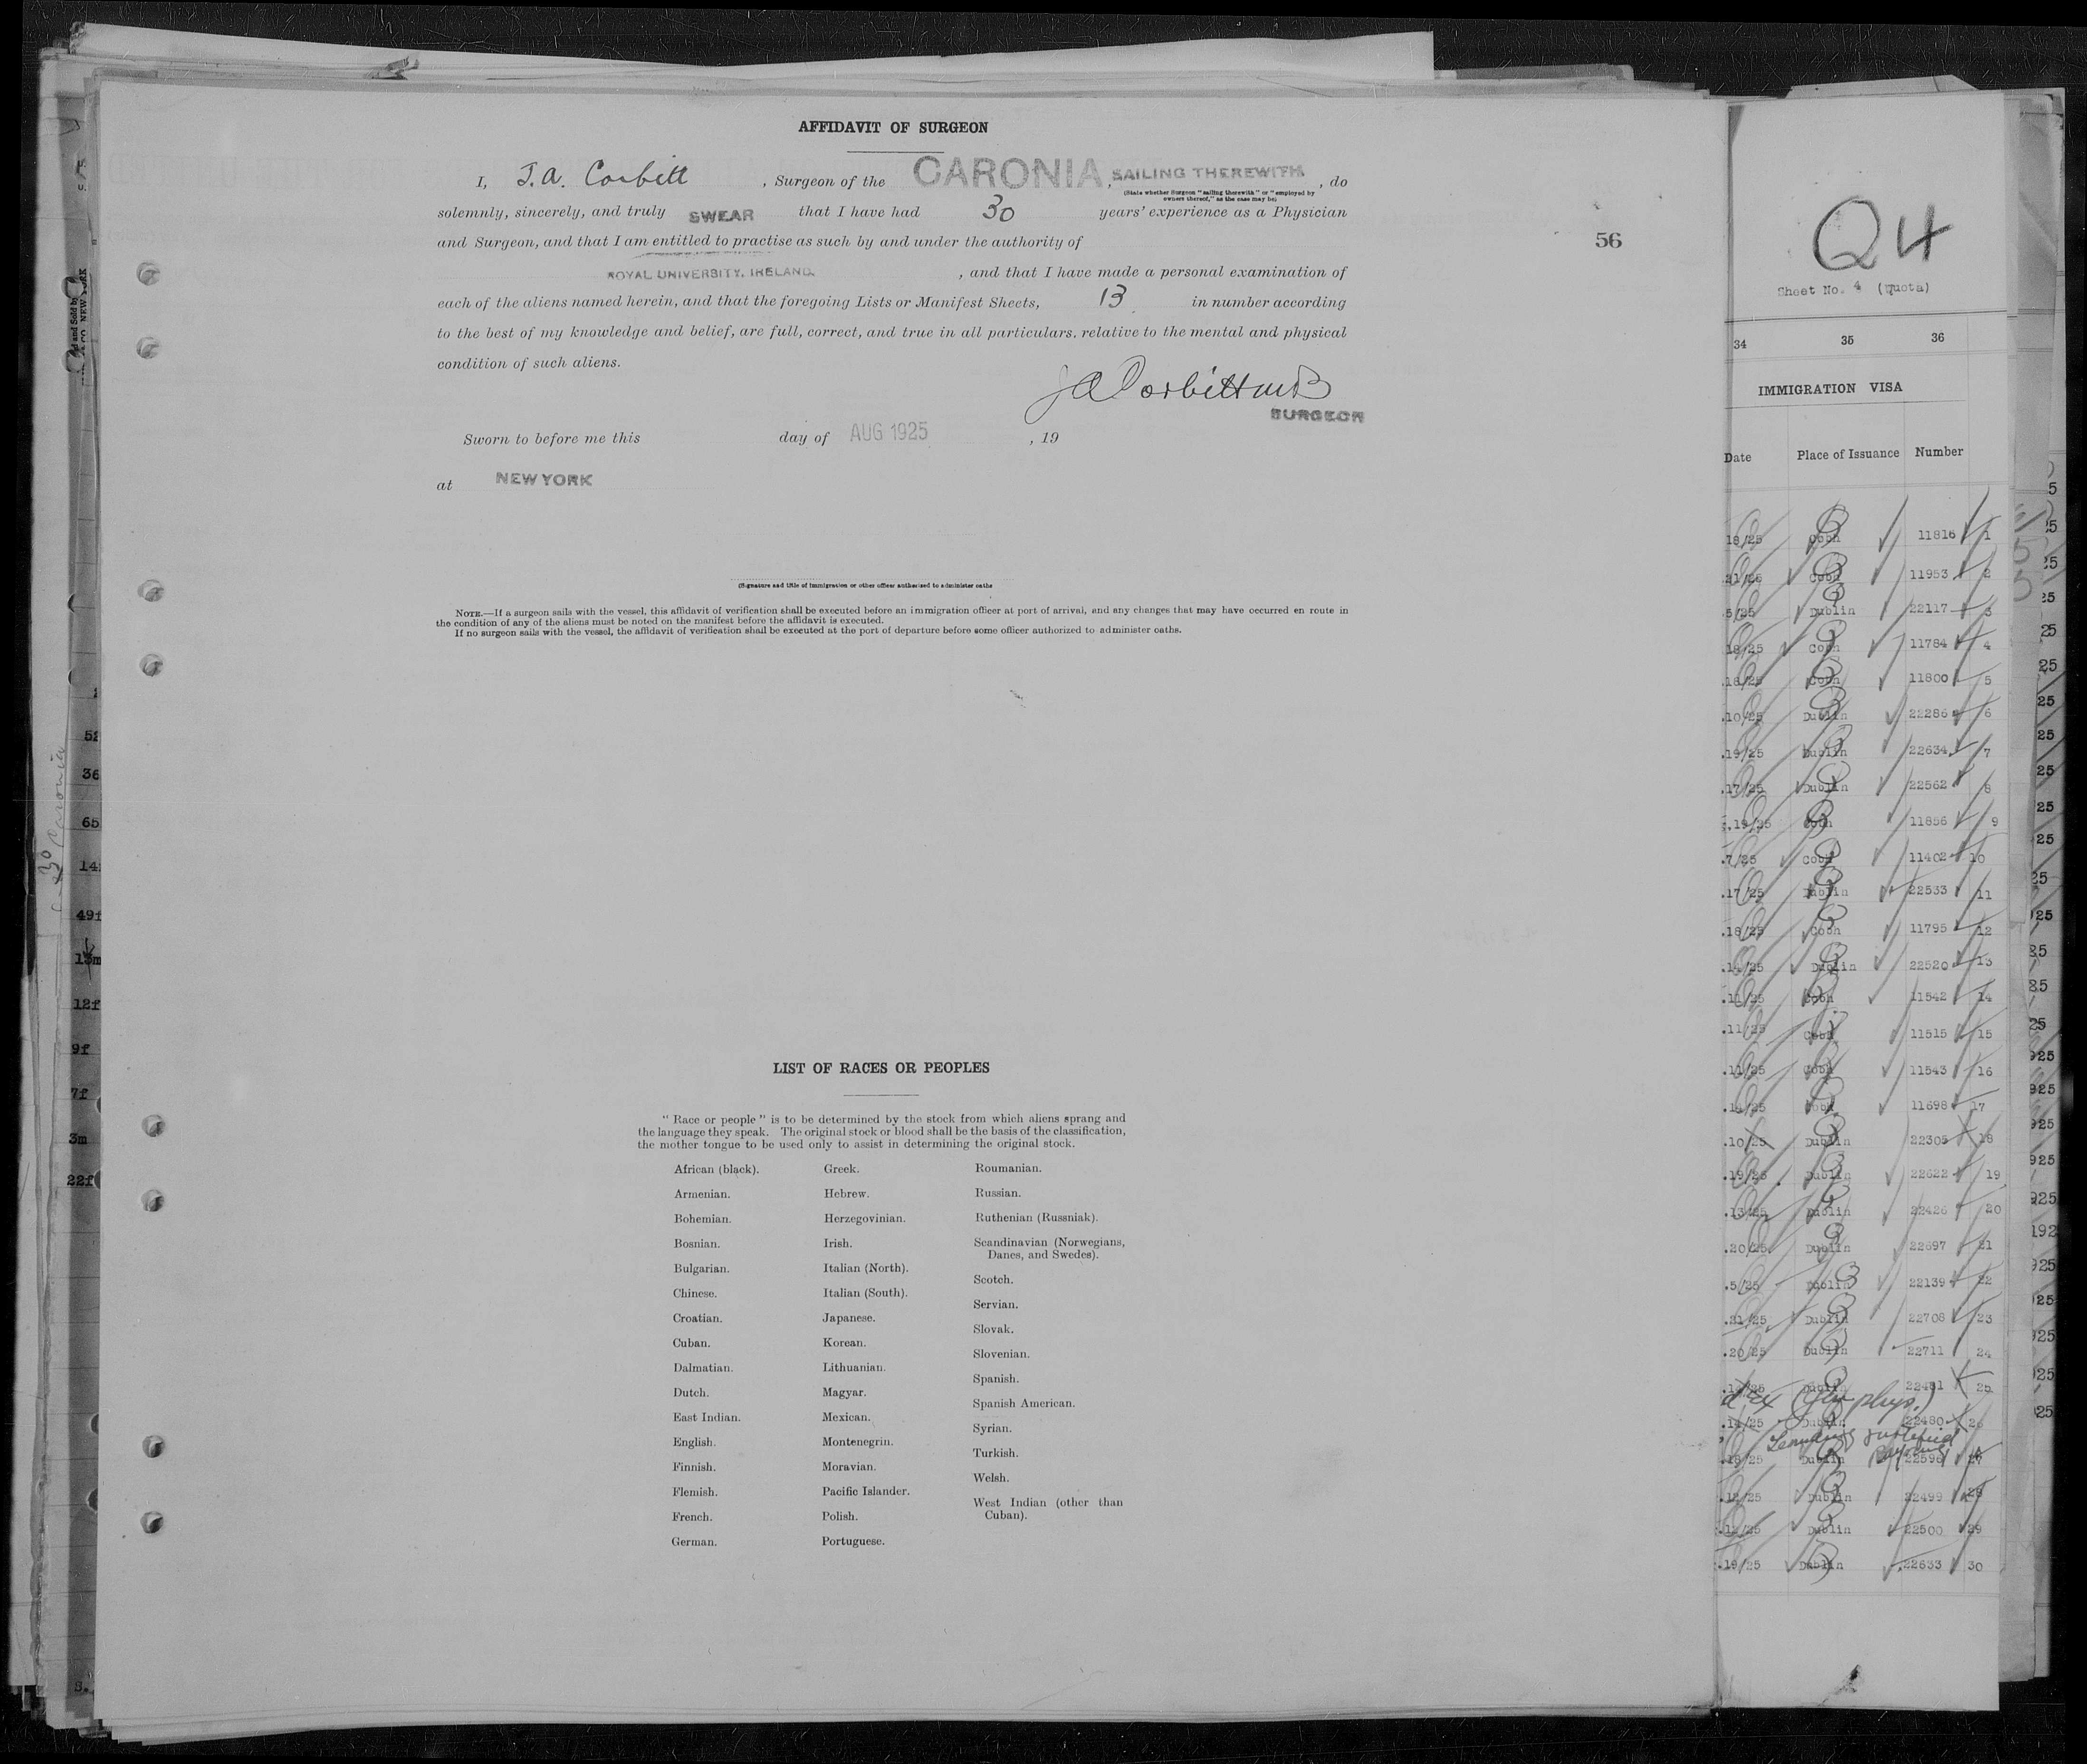 AFFIDAVIT OF SURGEON
I, J.A. Corbitt, Surgeon of the CARONIA, SAILING THEREWITH, do
(State whether Surgeon "sailing therewith" or "employed by
owners thereof," as the case may be)
solemnly, sincerely, and truly SWEAR that I have had 30 years' experience as a Physician
and Surgeon, and that I am entitled to practise as such by and under the authority of
ROYAL UNIVERSITY, IRELAND, and that I have made a personal examination of
each of the aliens named herein, and that the foregoing Lists or Manifest Sheets, 13 in number according
to the best of my knowledge and belief, are full, correct, and true in all particulars, relative to the mental and physical
condition of such aliens.
JA Corbitt MB
SURGEON
Sworn to before me this day of AUG 1925, 19
at NEW YORK
(Signature and title of immigration or other officer authorized to administer oaths
NOTE.—If a surgeon sails with the vessel, this affidavit of verification shall be executed before an immigration officer at port of arrival, and any changes that may have occurred en route in
the condition of any of the aliens must be noted on the manifest before the affidavit is executed.
If no surgeon sails with the vessel, the affidavit of verification shall be executed at the port of departure before some officer authorized to administer oaths.
56
LIST OF RACES OR PEOPLES
"Race or people" is to be determined by the stock from which aliens sprang and
the language they speak. The original stock or blood shall be the basis of the classification,
the mother tongue to be used only to assist in determining the original stock.
African (black).
Armenian.
Bohemian.
Bosnian.
Bulgarian.
Chinese.
Croatian.
Cuban.
Dalmatian.
Dutch.
East Indian.
English.
Finnish.
Flemish.
French.
German.
Greek.
Hebrew.
Herzegovinian.
Irish.
Italian (North).
Italian (South).
Japanese.
Korean.
Lithuanian.
Magyar.
Mexican.
Montenegrin.
Moravian.
Pacific Islander.
Polish.
Portuguese.
Roumanian.
Russian.
Ruthenian (Russniak).
Scandinavian (Norwegians,
Danes, and Swedes).
Scotch.
Servian.
Slovak.
Slovenian.
Spanish.
Spanish American.
Syrian.
Turkish.
Welsh.
West Indian (other than
Cuban).
Q4
Sheet No. 4 (quota)
34 35 36
IMMIGRATION VISA
Date Place of Issuance Number
18/25 Cobh 11816 1
21/25 Cobh 11953 2
5/25 Dublin 22117 3
18/25 Cobh 11784 4
18/25 Cobh 11800 5
.10/25 Dublin 22286 6
.19/25 Dublin 22634 7
.17/25 Dublin 22562 8
.19/25 Cobh 11856 9
.7/25 Cobh 11402 10
.17/25 Dublin 22533 11
.18/25 Cobh 11795 12
.14/25 Dublin 22520 13
.11/25 Cobh 11542 14
.11/25 Cobh 11515 15
.11/25 Cobh 11543 16
.14/25 Cobh 11698 17
.10/25 Dublin 22305 18
.19/25 Dublin 22622 19
.13/25 Dublin 22426 20
.20/25 Dublin 22697 21
.5/25 Dublin 22139 22
.21/25 Dublin 22708 23
.20/25 Dublin 22711 24
Dublin 22481 25
.14/25 Dublin 22480 26
.18/25 Dublin 22596 27
.12/25 Dublin 22499 28
.12/25 Dublin 22500 29
.19/25 Dublin 22633 30